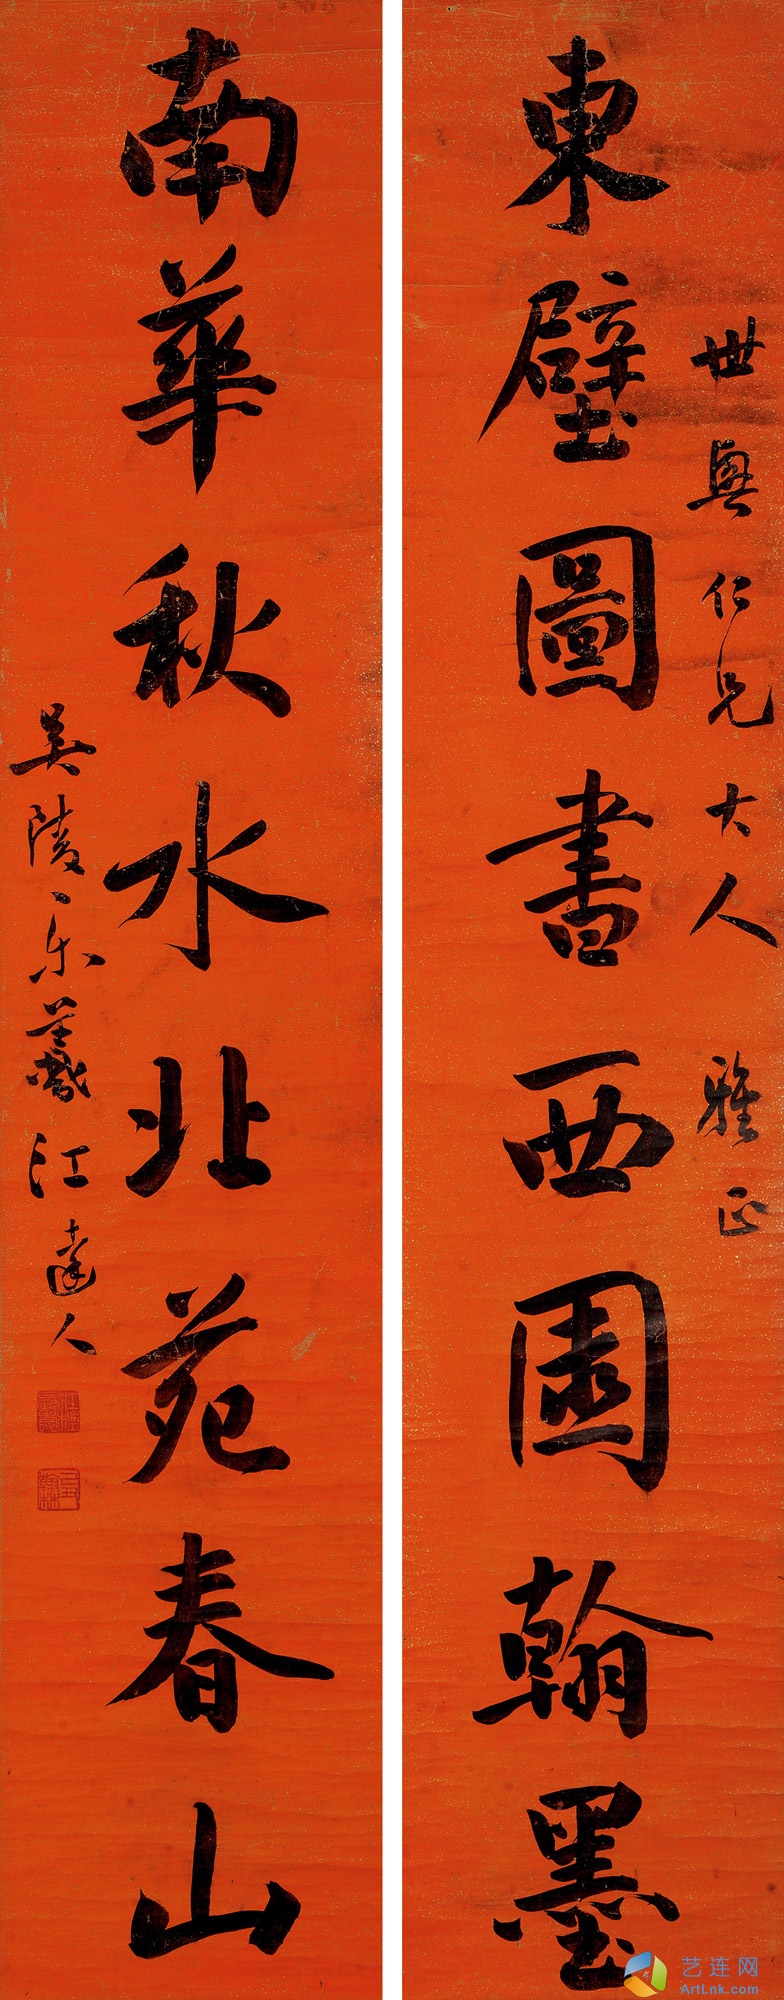 東壁圖書西園翰墨
世 仁兄大人 雅正
南華秋水北苑春山
吳陵 江達人
艺连网
ArtLnk.com